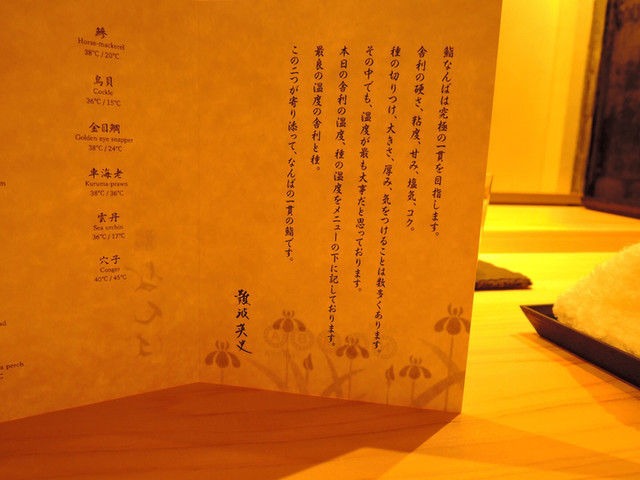 鯵
Horse-mackerel
38℃ / 20℃
鳥貝
Cockle
36℃ / 15℃
金目鯛
Golden eye snapper
38℃ / 24℃
車海老
Kuruma-prawn
38℃ / 36℃
雲丹
Sea urchin
36℃ / 17℃
穴子
Conger
40℃ / 45℃
a perch
鮨なんばは究極の一貫を目指します。
舎利の硬さ、粘度、甘み、塩気、コク。
種の切りつけ、大きさ、厚み、気をつけることは数多くあります。
その中でも、温度が最も大事だと思っております。
本日の舎利の温度、種の温度をメニューの下に記しております。
最良の温度の舎利と種。
この二つが寄り添って、なんばの一貫の鮨です。
難波英史